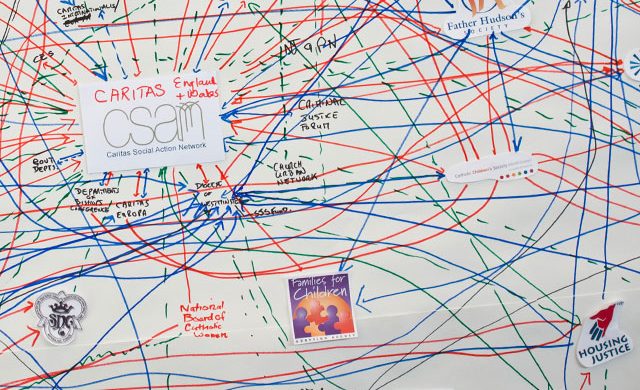 CARITAS
INTERNATIONALIS
Father Hudson's
SOCIETY
CARITAS England
+ Wales
csan
Caritas Social Action Network
CRIMINAL
JUSTICE
FORUM
GOVT
DEPTS
CHURCH
URBAN
NETWORK
Catholic Children's Society
DEPARTMENTS
OF
BISHOPS
CONFERENCE
CARITAS
EUROPA
OF
WESTMINSTER
Families for
Children
ADOPTION AGENCY
National
Board of
Catholic
Women
HOUSING
JUSTICE